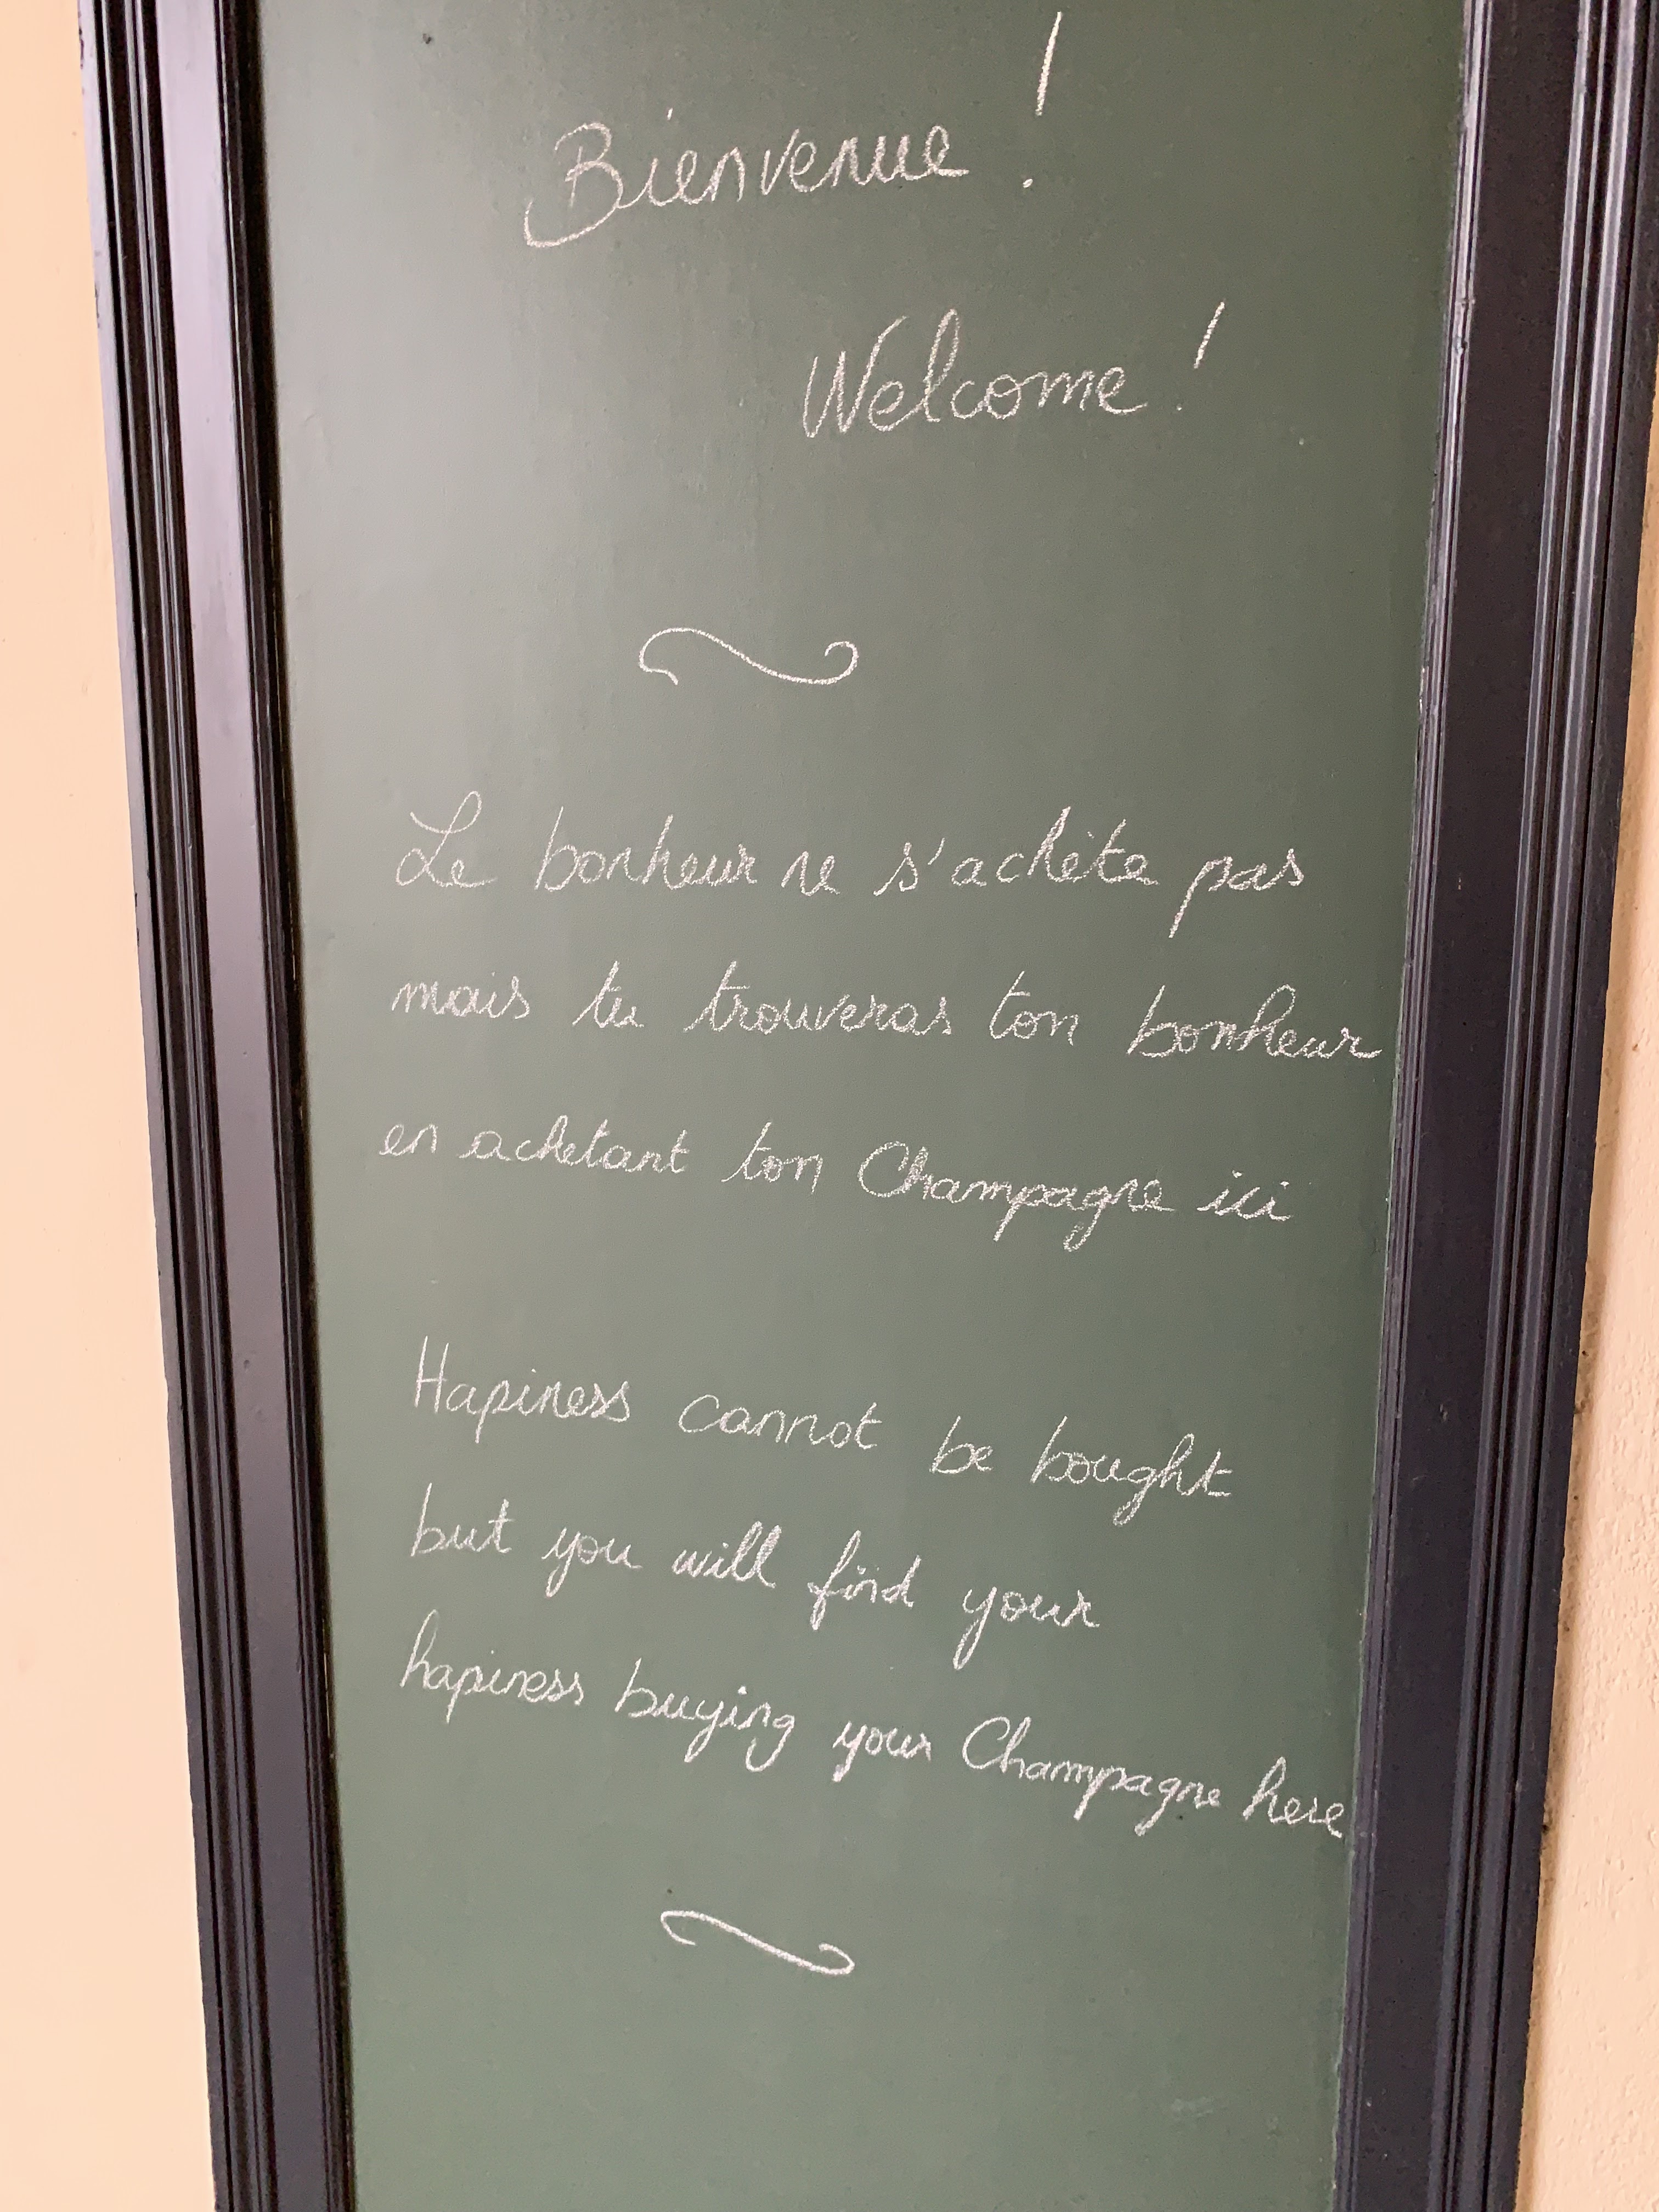 Bienvenue !
Welcome !
Le bonheur ne s'achète pas
mais tu trouveras ton bonheur
en achetant ton Champagne ici
Hapiness cannot be bought
but you will find your
hapiness buying your Champagne here